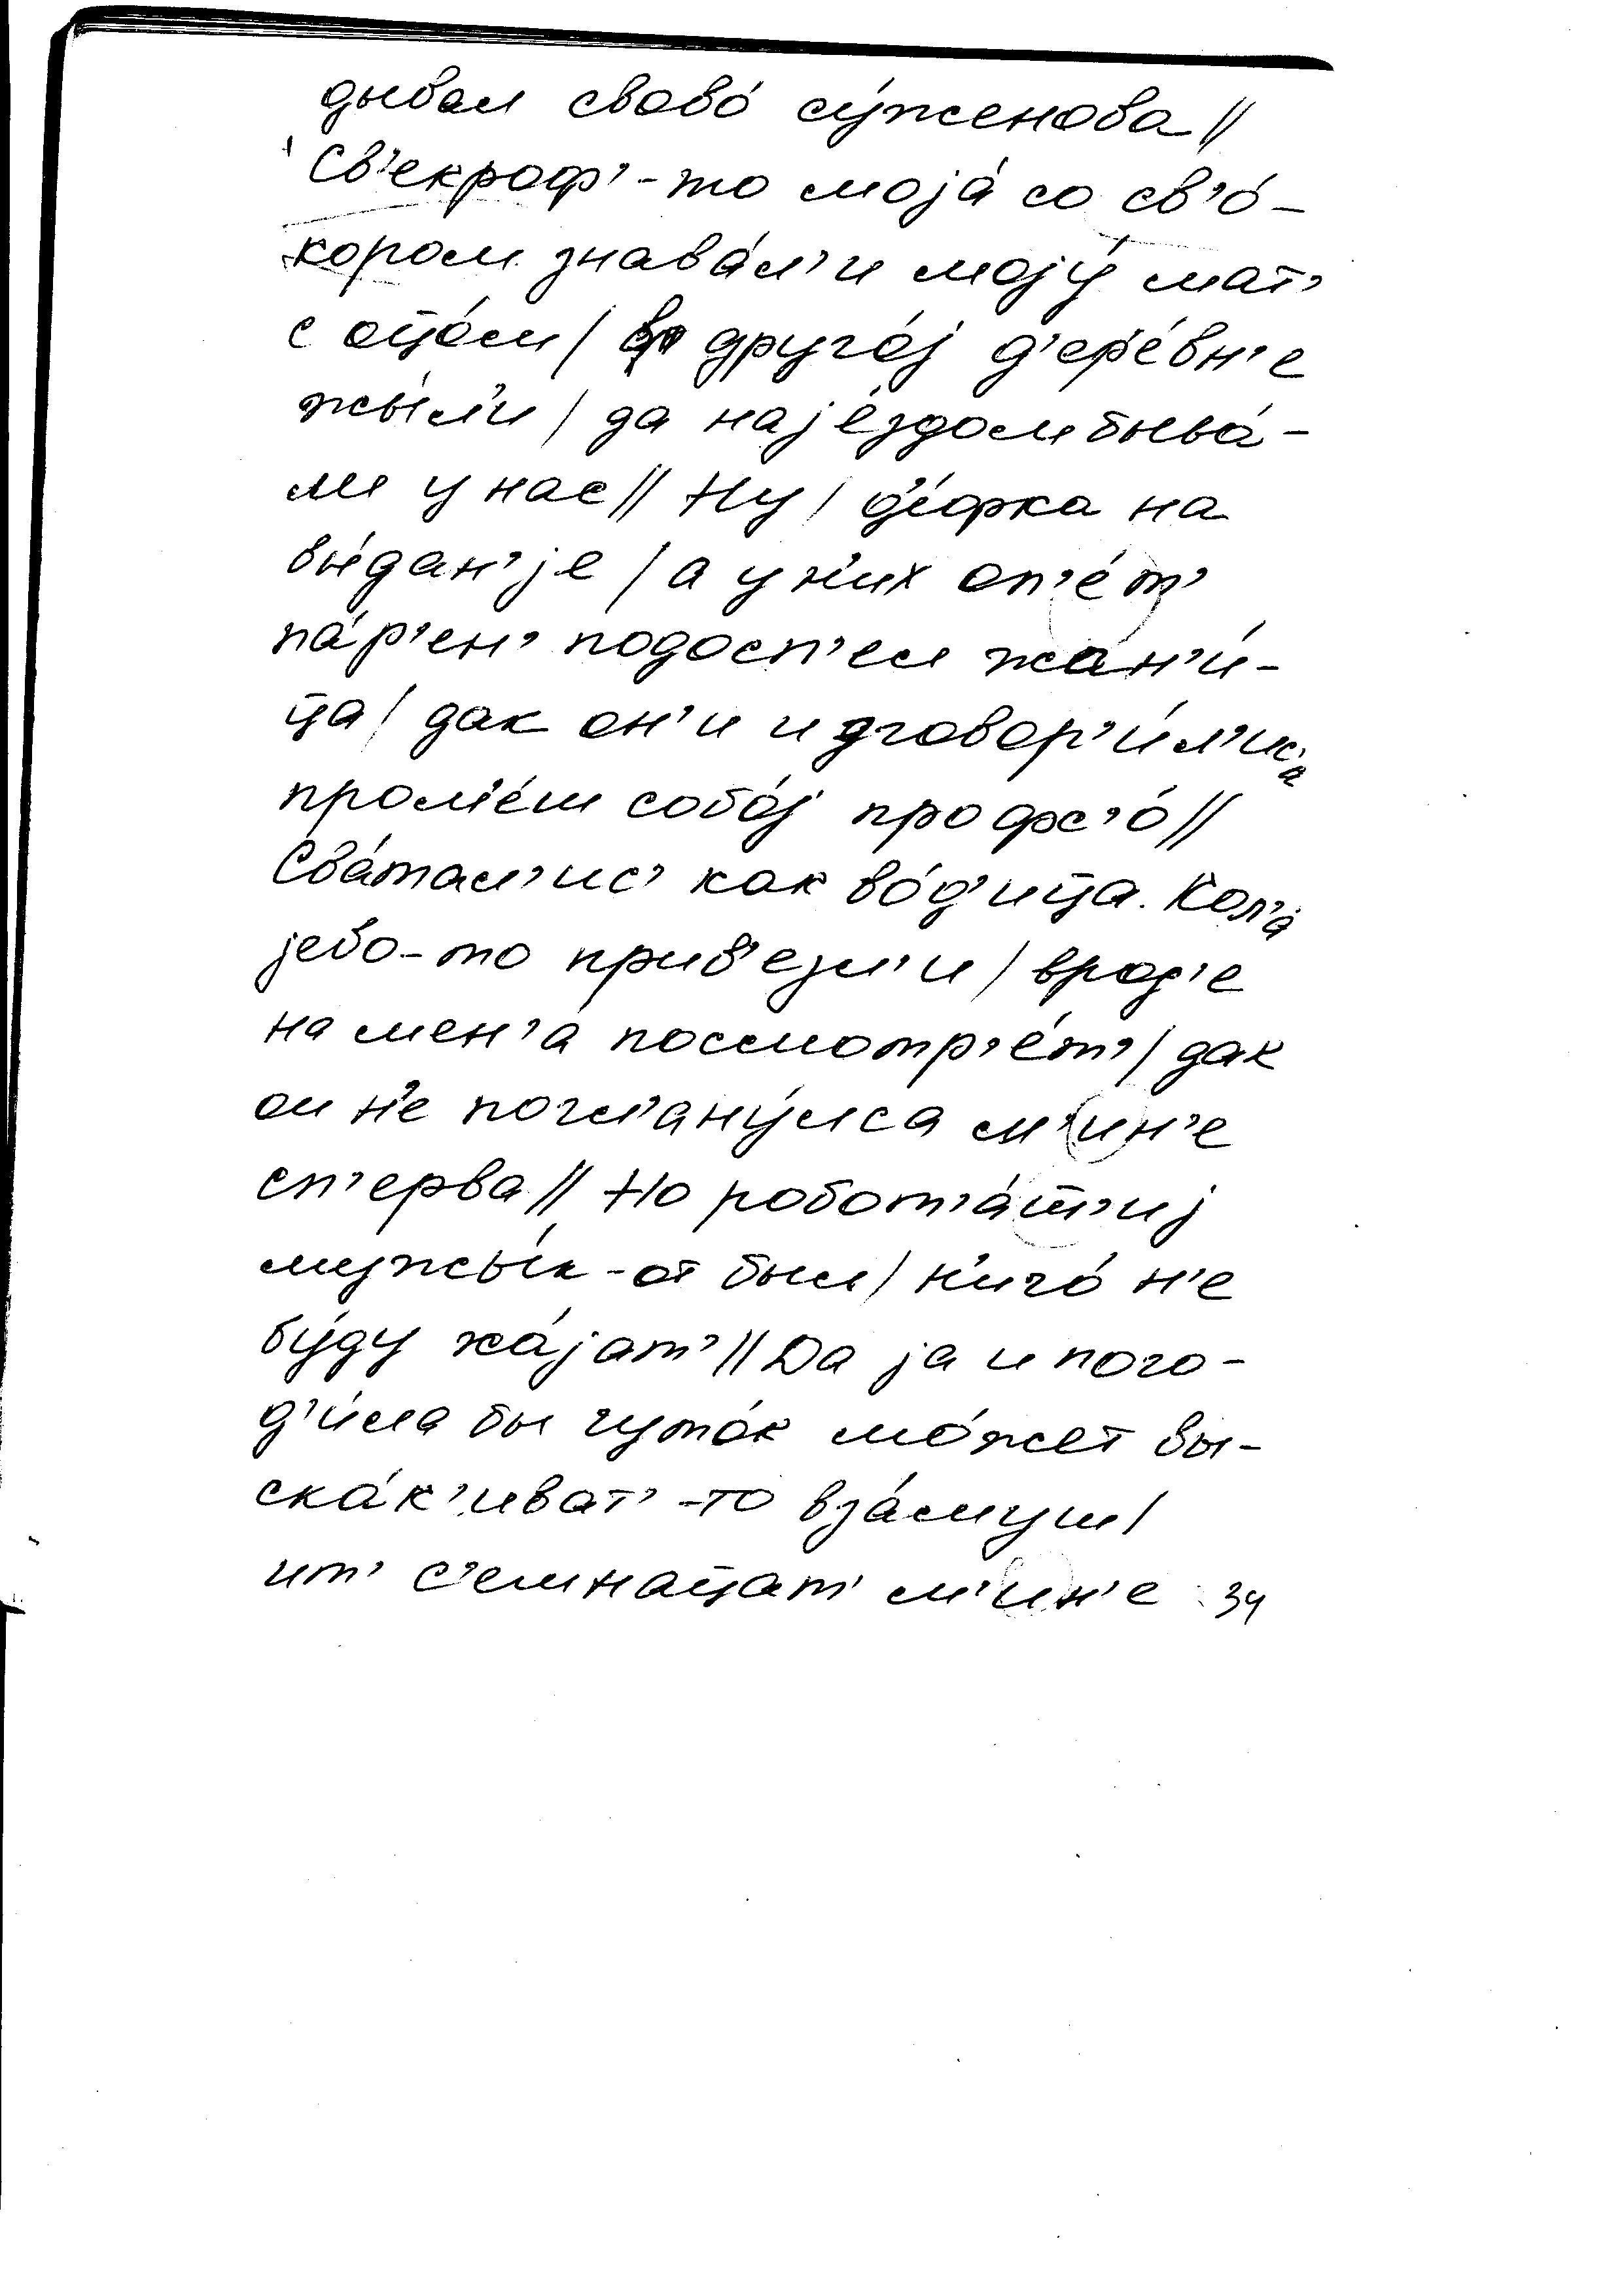 дывал свово́ су́женова //
Св'екроф'-то моја́ со св'о́-
кором знава́л'и моју́ мат'
с оцо́м / в другој д'ер'е́вн'е
жы́л'и / да нај'е́здом быва́-
ли у нас // Ну / д'е́фка на
вы́дан'је / а у н'их оп'е́т'
па́р'ен' подосп'ел жан'и́-
ца / дак он'и и дговор'и́л'ис'а
пром'е́ш собо́ј про фс'о́ //
Сва́тал'ис' как во́д'ица. Кол'а́
јево-то прив'езл'и / врод'е
на мен'а́ посмотр'е́т' / дак
он н'е погл'ану́лса м'ин'е
сп'ерва // Но робот'а́ш'иј
мужы́к-от был / н'ичо́ н'е
бу́ду ха́јат' // Да ја и пого-
д'и́ла бы чуто́к мо́жет вы-
ска́к'иват'-то вза́муш /
ит' с'емнацат' м'ин'е 34